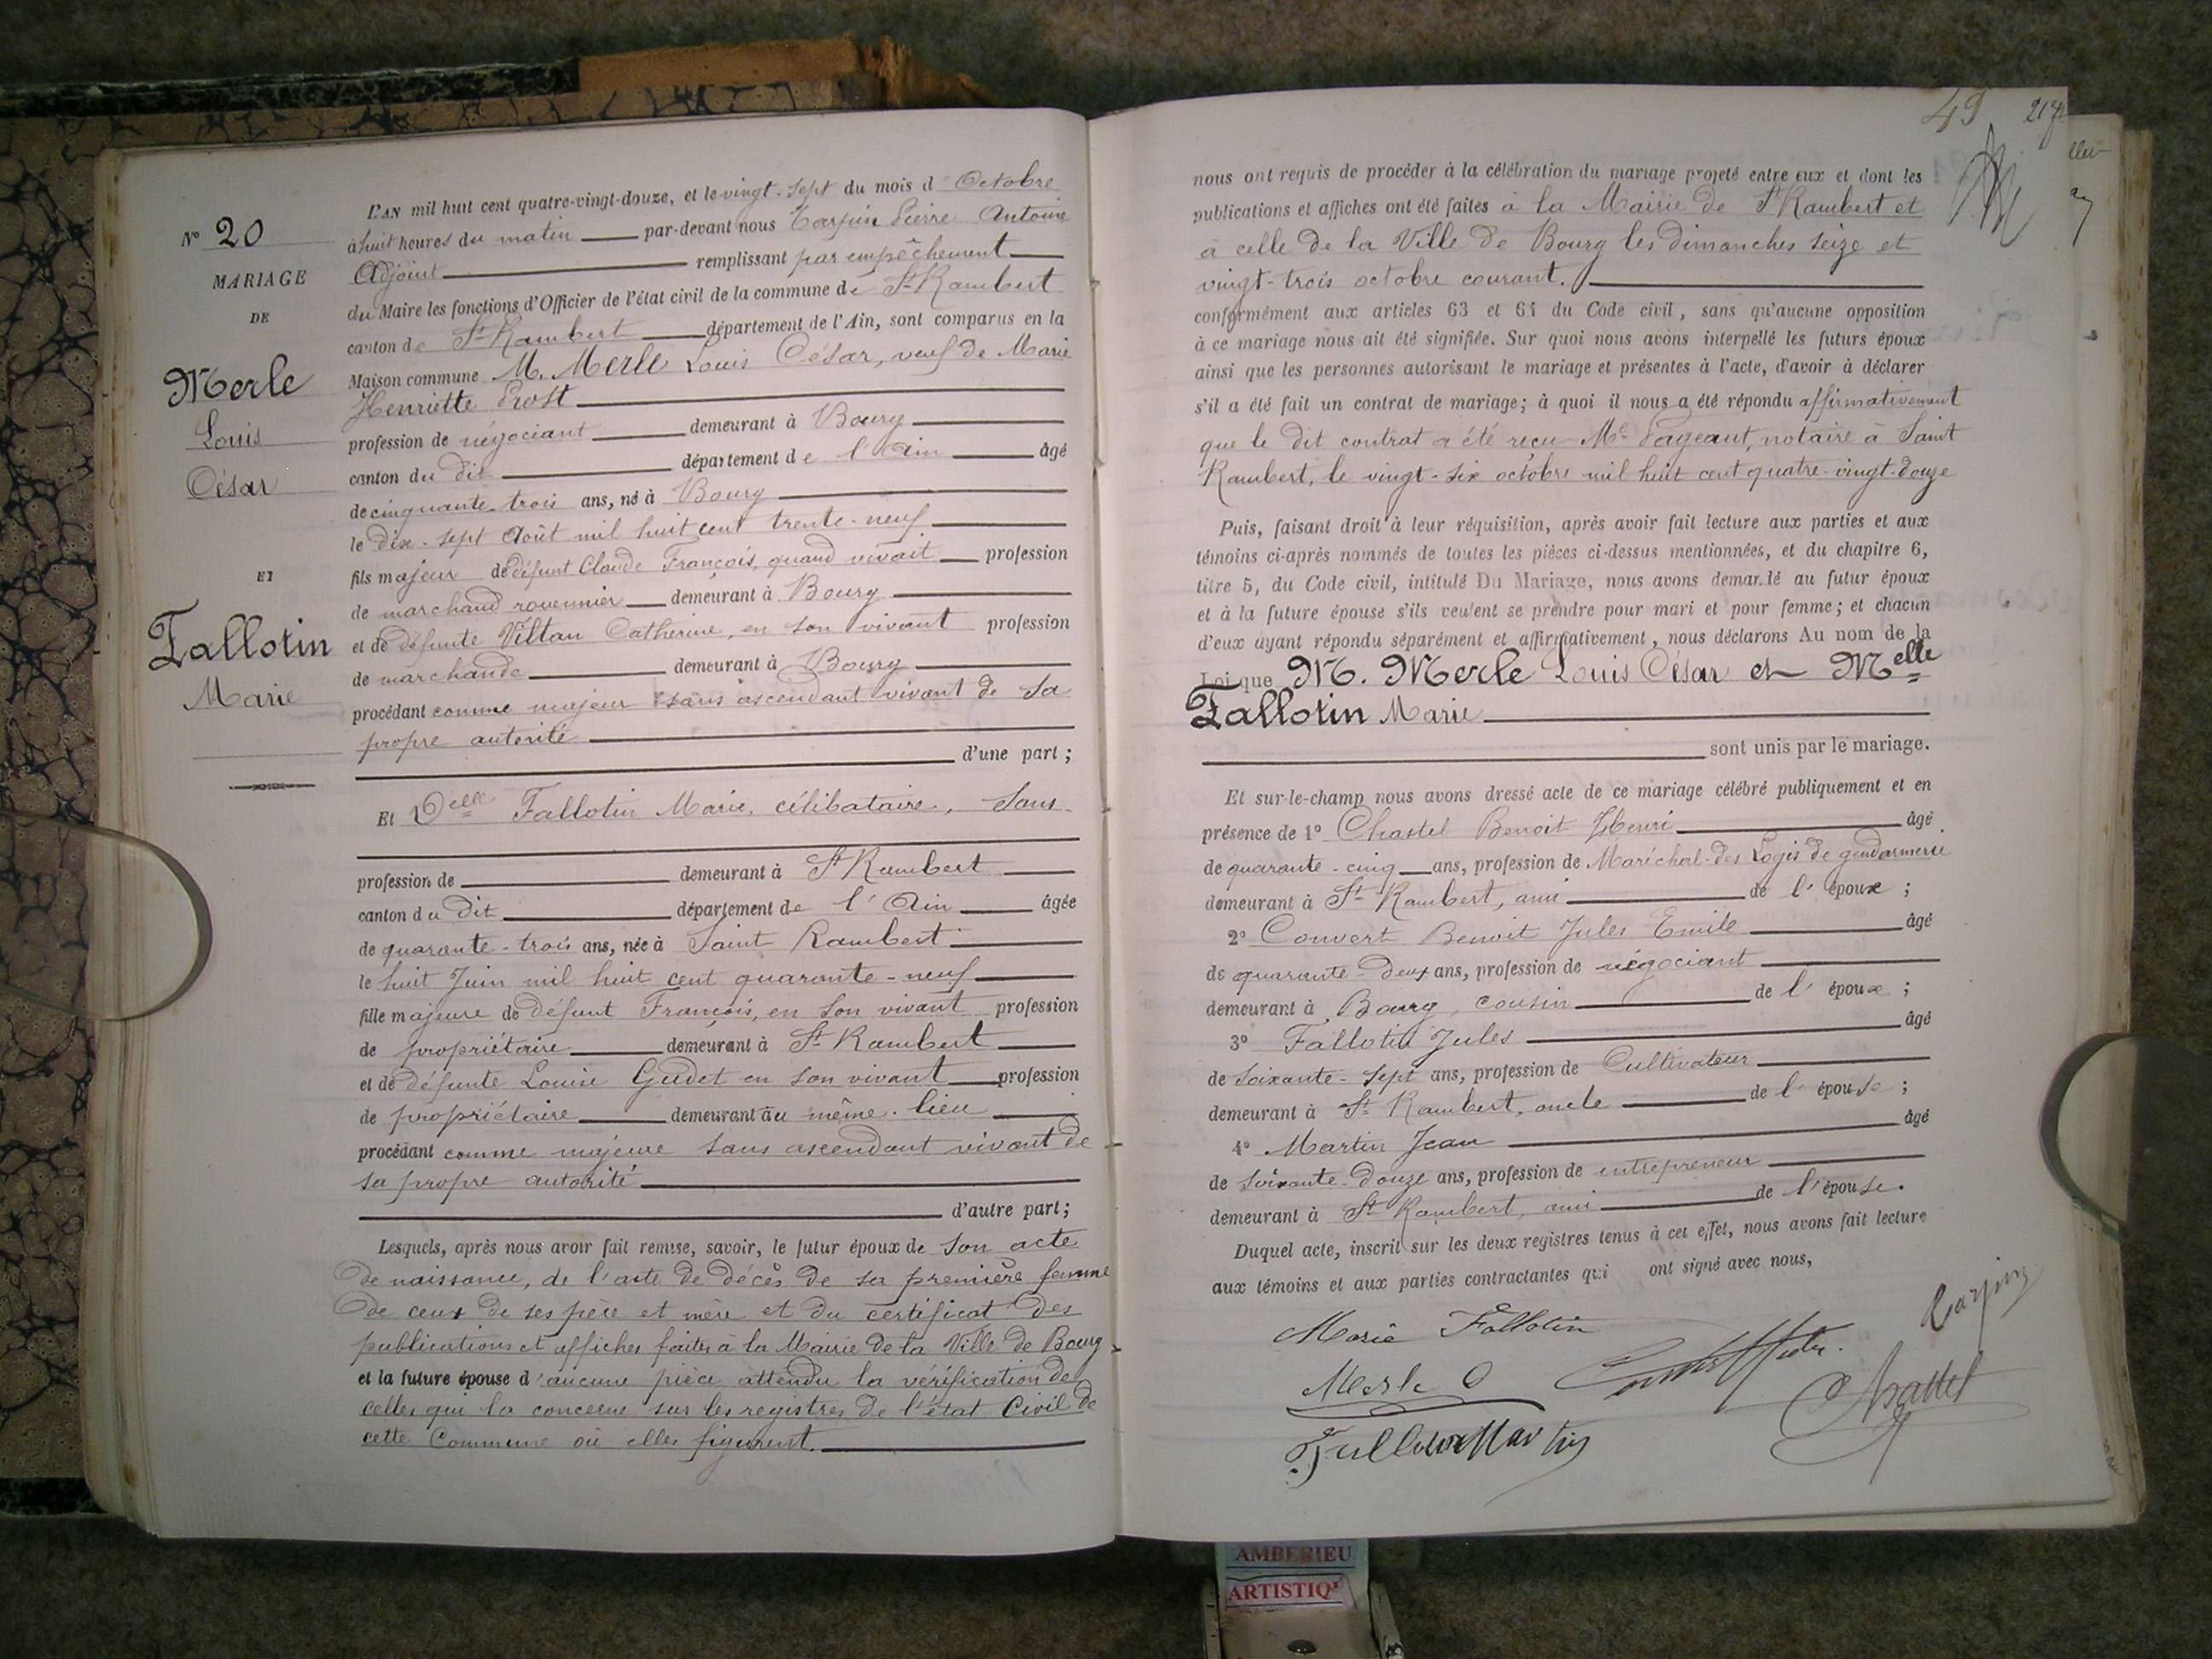 Nº 20
MARIAGE
DE
Merle
Louis
César
ET
Fallotin
Marie
L'AN mil huit cent quatre-vingt-douze, et le vingt-sept du mois d'Octobre
à huit heures du matin par-devant nous Tarpin Pierre Antoine
Adjoint remplissant par empêchement
du Maire les fonctions d'Officier de l'état civil de la commune de St Rambert
canton de St Rambert département de l'Ain, sont comparus en la
Maison commune M. Merle Louis César, veuf de Marie
Henriette Prost
profession de négociant demeurant à Bourg
canton du dit département de l'Ain âgé
de cinquante trois ans, né à Bourg
le dix-sept Août mil huit cent trente-neuf
fils majeur de défunt Claude François, quand vivait profession
de marchand rouennier demeurant à Bourg
et de défunte Viltan Catherine, en son vivant profession
de marchande demeurant à Bourg
procédant comme majeur sans ascendant vivant de sa
propre autorité
d'une part ;
Et Delle Fallotin Marie, célibataire, sans
profession de demeurant à St Rambert
canton du dit département de l'Ain âgée
de quarante-trois ans, née à Saint Rambert
le huit Juin mil huit cent quarante-neuf
fille majeure de défunt François, en son vivant profession
de propriétaire demeurant à St Rambert
et de défunte Louise Gudet en son vivant profession
de propriétaire demeurant au même lieu
procédant comme majeure sans ascendant vivant de
sa propre autorité
d'autre part ;
Lesquels, après nous avoir fait remise, savoir, le futur époux de son acte
de naissance, de l'acte de décès de sa première femme
de ceux de ses père et mère et du certificat des
publications et affiches faites à la Mairie de la Ville de Bourg
et la future épouse d'aucune pièce attendu la vérification de
celles qui la concerne sur les registres de l'état Civil de
cette Commune où elles figurent.
49
nous ont requis de procéder à la célébration du mariage projeté entre eux et dont les
publications et affiches ont été faites à la Mairie de St Rambert et
à celle de la Ville de Bourg les dimanches seize et
vingt-trois octobre courant.
conformément aux articles 63 et 64 du Code civil, sans qu'aucune opposition
à ce mariage nous ait été signifiée. Sur quoi nous avons interpellé les futurs époux
ainsi que les personnes autorisant le mariage et présentes à l'acte, d'avoir à déclarer
s'il a été fait un contrat de mariage ; à quoi il nous a été répondu affirmativement
que le dit contrat a été reçu Me Pageaut, notaire à Saint
Rambert, le vingt-six octobre mil huit cent quatre-vingt-douze
Puis, faisant droit à leur réquisition, après avoir fait lecture aux parties et aux
témoins ci-après nommés de toutes les pièces ci-dessus mentionnées, et du chapitre 6,
titre 5, du Code civil, intitulé Du Mariage, nous avons demandé au futur époux
et à la future épouse s'ils veulent se prendre pour mari et pour femme ; et chacun
d'eux ayant répondu séparément et affirmativement, nous déclarons Au nom de la
Loi que M. Merle Louis César et Melle
Fallotin Marie
sont unis par le mariage.
Et sur-le-champ nous avons dressé acte de ce mariage célébré publiquement et en
présence de 1º Chastel Benoit Henri âgé
de quarante-cinq ans, profession de Maréchal-des Logis de gendarmerie
demeurant à St Rambert, ami de l'époux ;
2º Convert Benoit Jules Emile âgé
de quarante-deux ans, profession de négociant
demeurant à Bourg, cousin de l'époux ;
3º Fallotin Jules âgé
de soixante-sept ans, profession de Cultivateur
demeurant à St Rambert, oncle de l'épouse ;
4º Martin Jean âgé
de soixante-douze ans, profession de entrepreneur
demeurant à St Rambert, ami de l'épouse.
Duquel acte, inscrit sur les deux registres tenus à cet effet, nous avons fait lecture
aux témoins et aux parties contractantes qui ont signé avec nous,
Marie Fallotin
Tarpin
Merle
Chastel
Fallotin Martin
AMBERIEU
ARTISTIQ